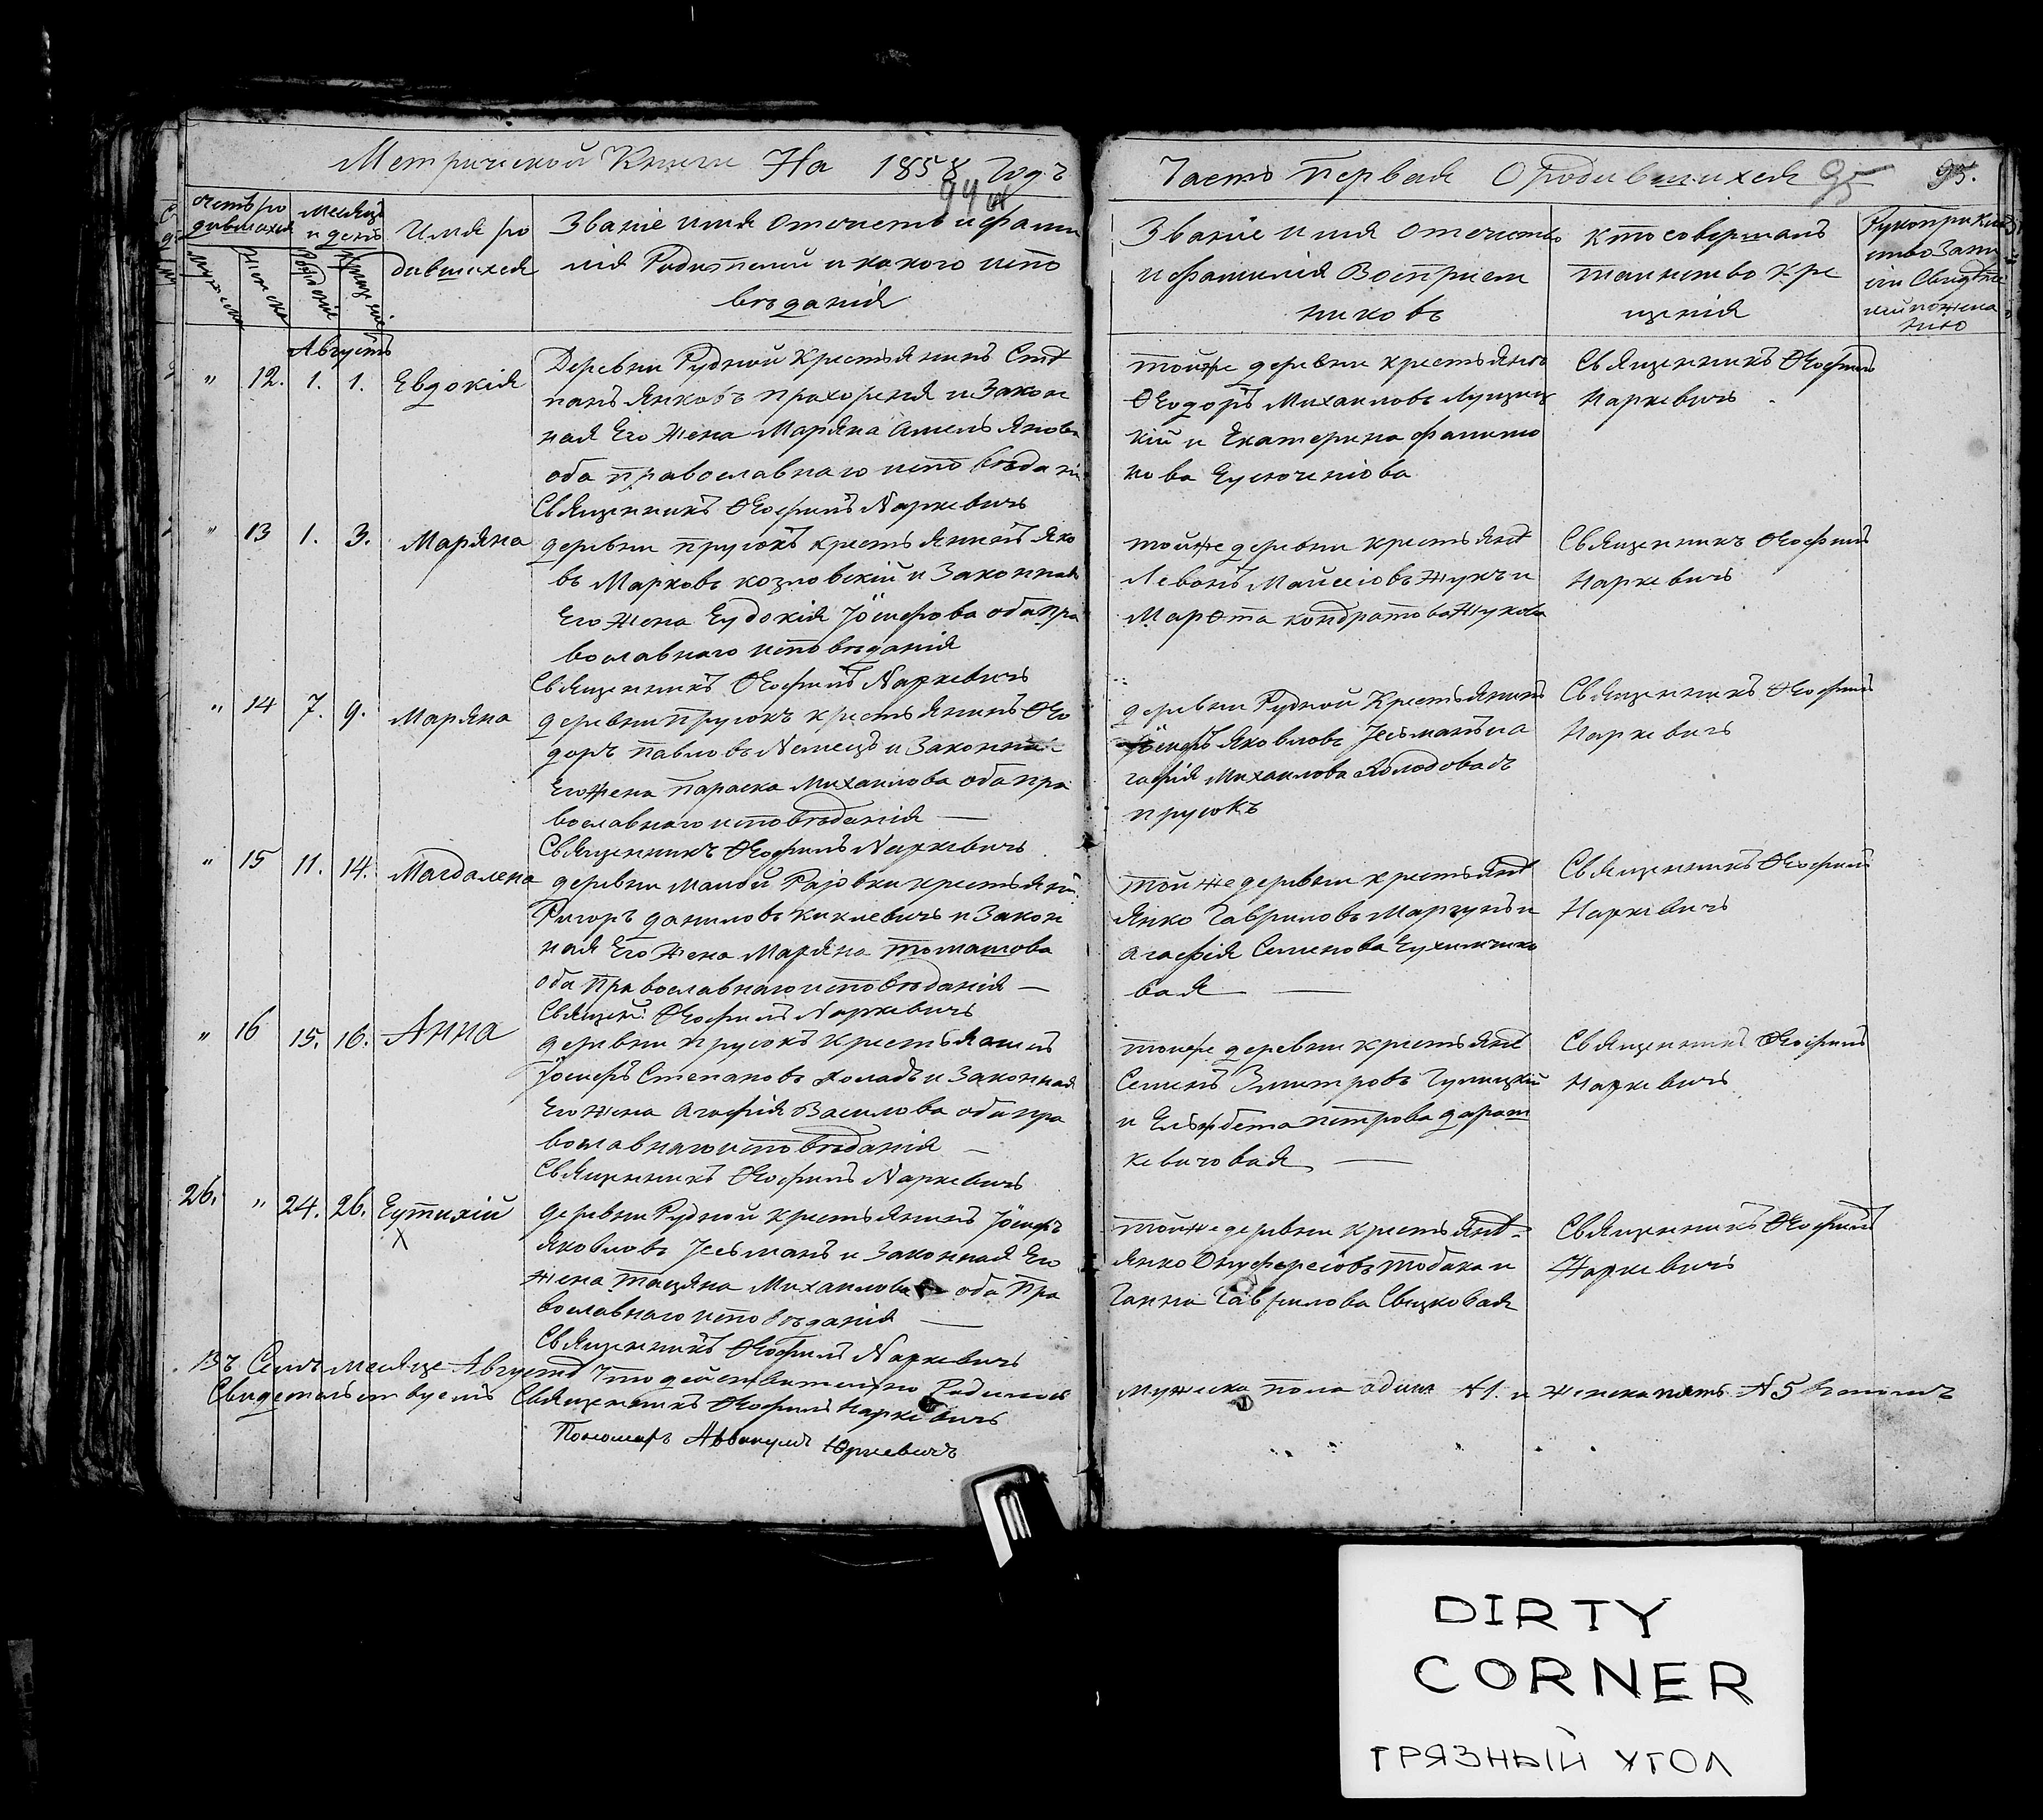 Метрической Книги На 1858 Годъ
94 об
Часть Первая О родившихся 95 95.
счетъ ро
дившихся
Мужеска
Женска
Месяцъ
и день
Рожденіе
Крещеніе
Имя ро
дившихся
Званіе имя отчество и фами
лія Родителей и какого испо
веданія
Званіе имя отечество
и фамилія Воспріем
никовъ
кто совершалъ
таинство кре
щенія
Рукоприклад
ство
Августъ
" 12. 1. 1. Евдокія
Деревни Рудной Крестьянинъ Сте
панъ Янковъ и закон
ная Его жена Маряна
оба православнаго исповѣданія
Священникъ Ѳеофилъ Наркевичъ
тойже деревни крестьяне
Ѳеодоръ Михаиловъ
кій и Екатерина
Священникъ Ѳеофилъ
Наркевичъ
" 13 1. 3. Маряна
деревни прусокъ крестьянинъ Яко
въ Марковъ козловскій и Законная
Его жена Еудокія Іосифова оба пра
вославнаго исповѣданія
Священникъ Ѳеофилъ Наркевичъ
тойже деревни крестьяне
Левонъ Мойсеіовъ Жукъ и
Марѳта кондратова Жукова
Священникъ Ѳеофилъ
Наркевичъ
" 14 7. 9. Маряна
деревни прусокъ крестьянинъ Ѳео
доръ павловъ Немецъ и Законная
Его жена параска Михаилова оба пра
вославнаго исповѣданія —
Священникъ Ѳеофилъ Наркевичъ
деревни Рудной Крестьянинъ
Іосифъ Яковловъ Іесьманъ и а
гафія Михаилова
прусокъ
Священникъ Ѳеофилъ
Наркевичъ
" 15 11. 14. Магдалена
деревни малой Раіовки крестьянинъ
Ригоръ даниловъ киклевичъ и Закон
ная Его жена Маряна томашова
оба православнаго исповѣданія —
Священ: Ѳеофилъ Наркевичъ
той же деревни крестьяне
Янко Гавриловъ Маргунъ и
агафія Семенова
вая —
Священникъ Ѳеофилъ
Наркевичъ
" 16 15. 16. Анна
деревни прусокъ крестьянинъ
Іосифъ Степановъ холадъ и Законная
Его жена Агафія Василова оба пра
вославнаго исповѣданія —
Священникъ Ѳеофилъ Наркевичъ
тойже деревни крестьяне
Семенъ Змитровъ
и Ельжбета петрова
кевичовая —
Священникъ Ѳеофилъ
Наркевичъ
26. " 24. 26. Еутихій
х
деревни Рудной крестьянинъ Іосифъ
Яковловъ Іесьманъ и Законная Его
жена тацяна Михаилова оба Пра
вославнаго исповѣданія —
Священникъ Ѳеофилъ Наркевичъ
тойже деревни крестьяне
Янко Онуфреіовъ тобака и
Ганна Гаврилова Свицковая
Священникъ Ѳеофилъ
Наркевичъ
Въ Семъ месяце Августе Что действительно Родилось
мужеска пола одинъ N 1. и женска пять N 5 в томъ
Свидетельствуемъ Священникъ Ѳеофилъ Наркевичъ
Пономарь Аввакумъ Юркевичъ
DIRTY
CORNER
ГРЯЗНЫЙ УГОЛ